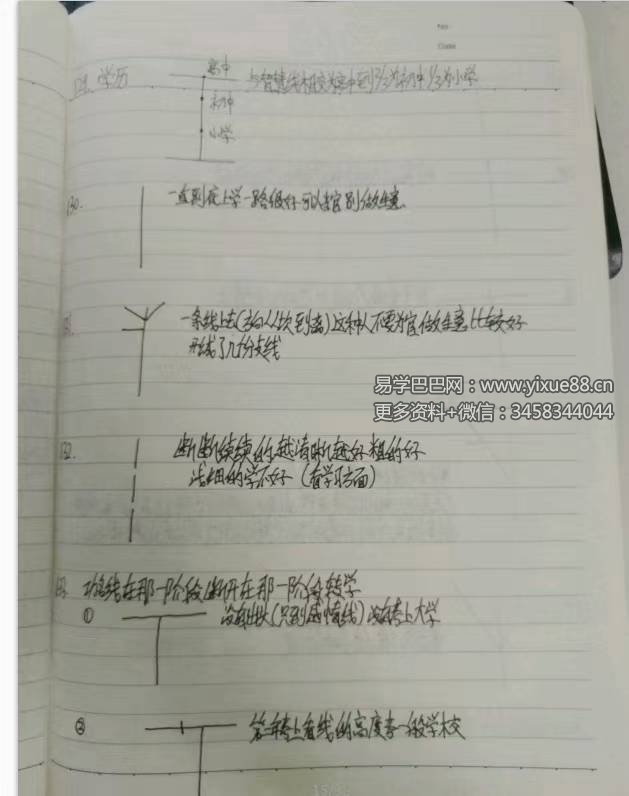 No:
Date:
129. 学历
高中
初中
小学
与智慧线相交为高中 到2/3为初中 1/3为小学
130. 一直到底上学一路很好 可以考官 别做生意
131. 一条线上去(方向从坎到离)这种人不要为官 做生意比较好
形成了几份支线
易学巴巴网:www.yixue88.cn
更多资料+微信:3458344044
132. 断断续续的越清晰越好 粗的好
浅细的学不好 (看学习方面)
功名线在那一阶段断开在那一阶段转学
① 没有出头(只到感情线) 没有考上大学
② 第一年考上看线的高度考一般学校